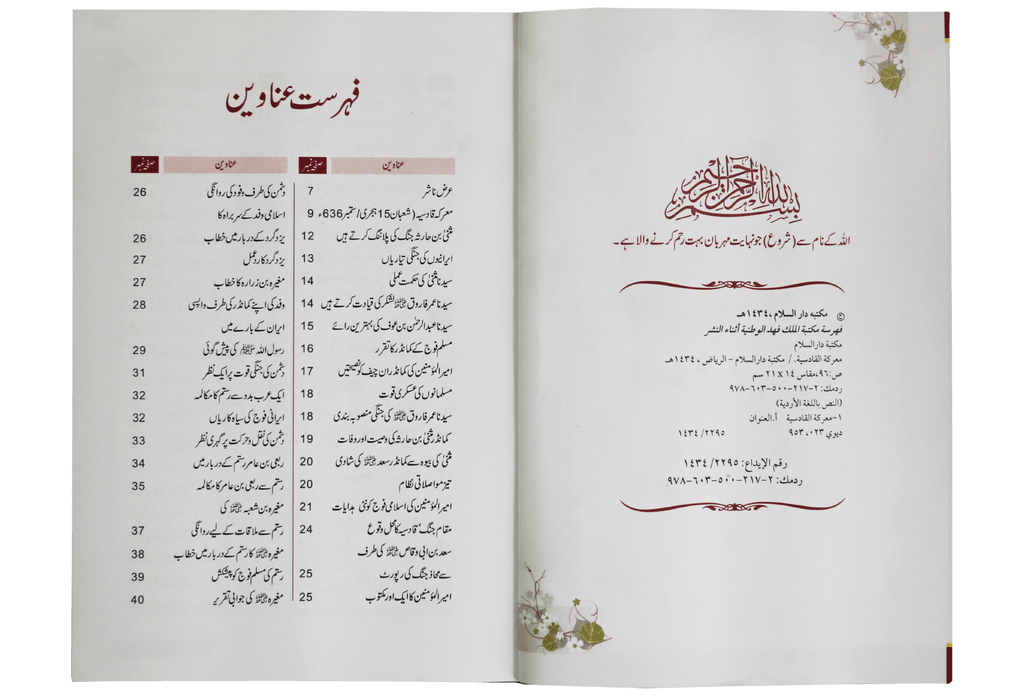 بسم الله الرحمن الرحيم
اللہ کے نام سے (شروع) جو نہایت مہربان بہت رحم کرنے والا ہے۔
© مكتبه دار السلام ،١٤٣٤هـ
فهرسة مكتبة الملك فهد الوطنية أثناء النشر
مكتبة دارالسلام
معركة القادسية. / مكتبة دارالسلام - الرياض ،١٤٣٤هـ
ص:٩٦،مقاس ١٤ x ٢١ سم
ردمك: ٢-٢١٧-٥٠٠-٦٠٣-٩٧٨
(النص باللغة الأردية)
١-معركة القادسية أ.العنوان
ديوي ٩٥٣،٠٢٣ ٢٢٩٥/ ١٤٣٤
رقم الإيداع: ٢٢٩٥/ ١٤٣٤
ردمك: ٢-٢١٧-٥٠٠-٦٠٣-٩٧٨
فہرست عناوین
عناوین صفحہ نمبر
عرض ناشر 7
معرکہ قادسیہ (شعبان 15 ہجری/ستمبر 636ء 9
مثنیٰ بن حارثہ جنگ کی پلاننگ کرتے ہیں 12
ایرانیوں کی جنگی تیاریاں 13
سیدنا مثنیٰ کی حکمت عملی 14
سیدنا عمر فاروق ﷜ لشکر کی قیادت کرتے ہیں 14
سیدنا عبدالرحمٰن بن عوف کی بہترین رائے 15
مسلم فوج کے کمانڈر کا تقرر 16
امیر المؤمنین کی کمانڈران چیف کو نصیحتیں 17
مسلمانوں کی عسکری قوت 18
سیدنا عمر فاروق ﷜ کی جنگی منصوبہ بندی 18
کمانڈر مثنیٰ بن حارثہ کی وصیت اور وفات 19
مثنیٰ کی بیوہ سے کمانڈر سعد ﷜ کی شادی 20
تیز مواصلاتی نظام 20
امیر المؤمنین کی اسلامی فوج کو نئی ہدایات 21
مقام جنگ ”قادسیہ“ کا محل وقوع 24
سعد بن ابی وقاص ﷜ کی طرف
سے محاذ جنگ کی رپورٹ 25
امیر المؤمنین کا ایک اور مکتوب 25
عناوین صفحہ نمبر
دشمن کی طرف وفود کی روانگی 26
اسلامی وفد کے سربراہ کا
یزدگرد کے دربار میں خطاب 26
یزدگرد کا رد عمل 27
مغیرہ بن زرارہ کا خطاب 27
وفد کی اپنے کمانڈر کی طرف واپسی 28
ایران کے بارے میں
رسول اللہ ﷺ کی پیش گوئی 29
دشمن کی جنگی قوت پر ایک نظر 31
ایک عرب بدو سے رستم کا مکالمہ 32
ایرانی فوج کی سیاہ کاریاں 32
دشمن کی نقل و حرکت پر گہری نظر 33
ربعی بن عامر رستم کے دربار میں 34
رستم سے ربعی بن عامر کا مکالمہ 35
مغیرہ بن شعبہ ﷜ کی
رستم سے ملاقات کے لیے روانگی 37
مغیرہ ﷜ کا رستم کے دربار میں خطاب 38
رستم کی مسلم فوج کو پیشکش 39
مغیرہ ﷜ کی جوابی تقریر 40